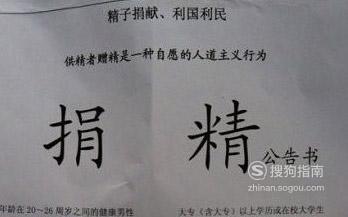 精子捐献、利国利民
供精者赠精是一种自愿的人道主义行为
捐 精 公告书
年龄在20~26 周岁之间的健康男性
大专（含大专）以上学历或在校大学生
搜狗指南
zhinan.sogou.com